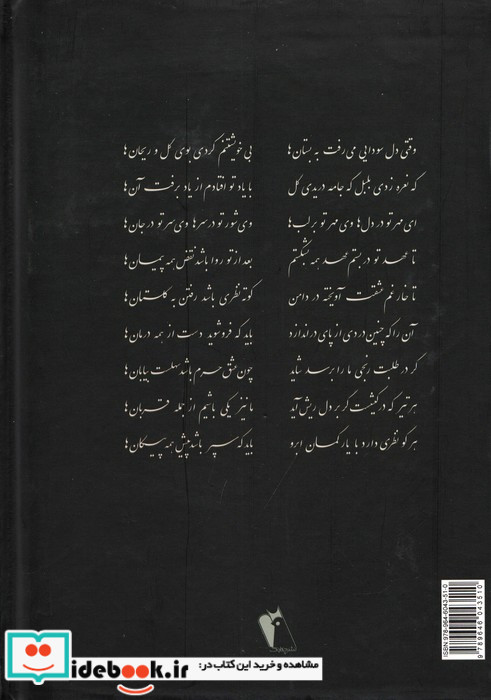 وقتی دل سودایی می‌رفت به بستان‌ها بی خویشتنم کردی بوی گل و ریحان‌ها
که نعره زدی بلبل که جامه دریدی گل با یاد تو افتادم از یاد برفت آن‌ها
ای مهر تو در دل‌ها وی مهر تو بر لب‌ها وی شور تو در سرها وی سر تو در جان‌ها
تا عهد تو در بستم عهد همه بشکستم بعد از تو روا باشد نقض همه پیمان‌ها
تا خار غم عشقت آویخته در دامن کوته نظری باشد رفتن به گلستان‌ها
آن را که چنین دردی از پای در اندازد باید که فروشوید دست از همه درمان‌ها
گر در طلبت رنجی ما را برسد شاید چون عشق حرم باشد سهلست بیابان‌ها
هر تیر که در کیشست گر بر دل ریش آید ما نیز یکی باشیم از جمله قربان‌ها
هر کو نظری دارد با یار کمان ابرو باید که سپر باشد پیش همه پیکان‌ها
ISBN 978-964-6043-51-0
9 789646 043510
idebook.ir
مشاهده و خرید این کتاب در: